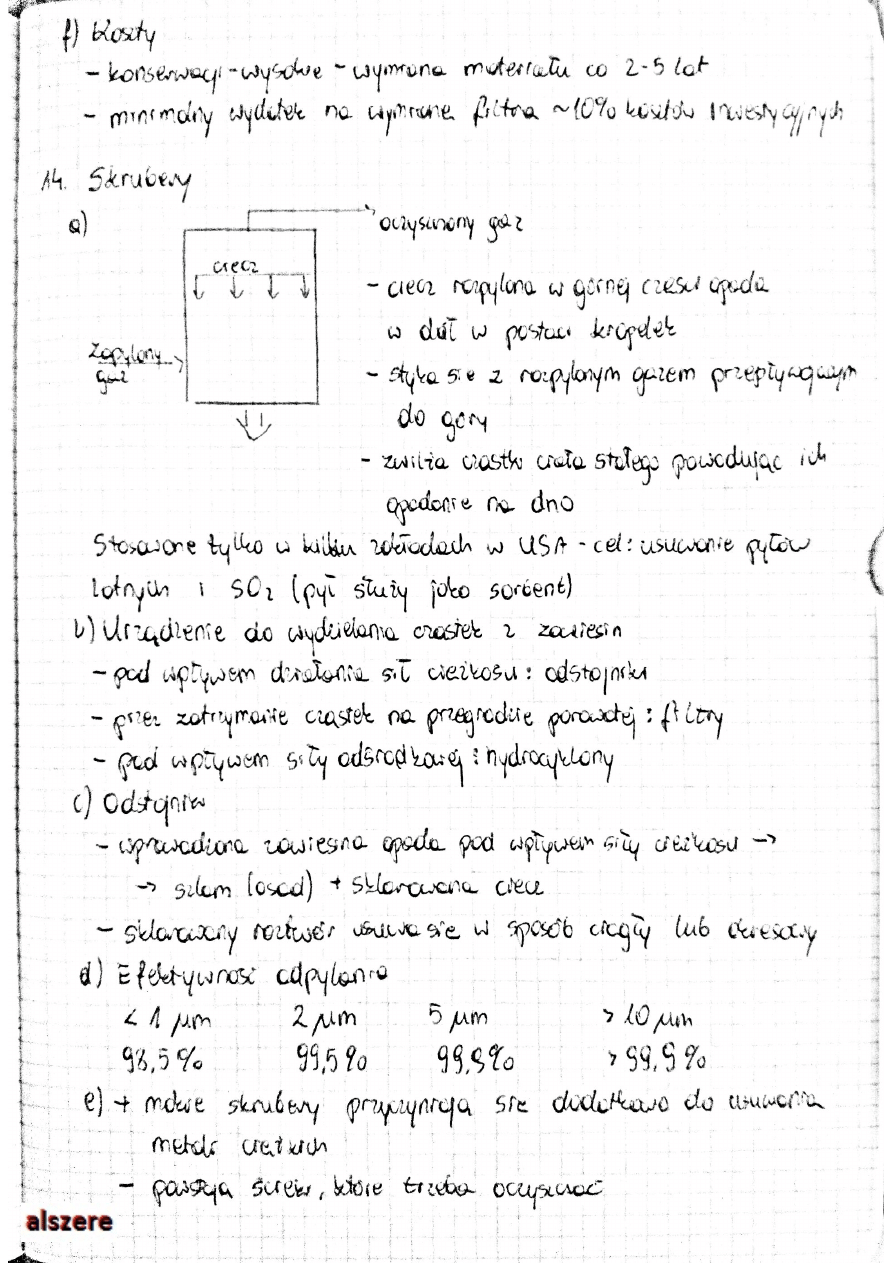 f) Koszty
- konserwacji - wysokie - wymiana materiału co 2-5 lat
- minimalny wydatek na wymianę filtra ~10% kosztów inwestycyjnych
14. Skrubery
a)
oczyszczony gaz
ciecz
Zapylony
gaz
- ciecz rozpylona w górnej części opada
w dół w postaci kropelek
- styka się z rozpylonym gazem przepływającym
do góry
- zwilża cząstki ciała stałego powodując ich
opadanie na dno
Stosowane tylko w kilku zakładach w USA - cel: usuwanie pyłów
lotnych i SO₂ (pył służy jako sorbent)
b) Urządzenie do wydzielania cząstek z zawiesin
- pod wpływem działania sił ciężkości: odstojniki
- przez zatrzymanie cząstek na przegrodzie porowatej: filtry
- pod wpływem siły odśrodkowej: hydrocyklony
c) Odstojniki
- wprowadzona zawiesina opada pod wpływem siły ciężkości →
→ szlam (osad) + sklarowana ciecz
- sklarowany roztwór usuwa się w sposób ciągły lub okresowy
d) Efektywność odpylania
< 1 µm 2 µm 5 µm > 10 µm
98,5% 99,5% 99,9% > 99,9%
e) + mokre skrubery przyczyniają się dodatkowo do usuwania
metali ciężkich
- powstają ścieki, które trzeba oczyszczać
alszere